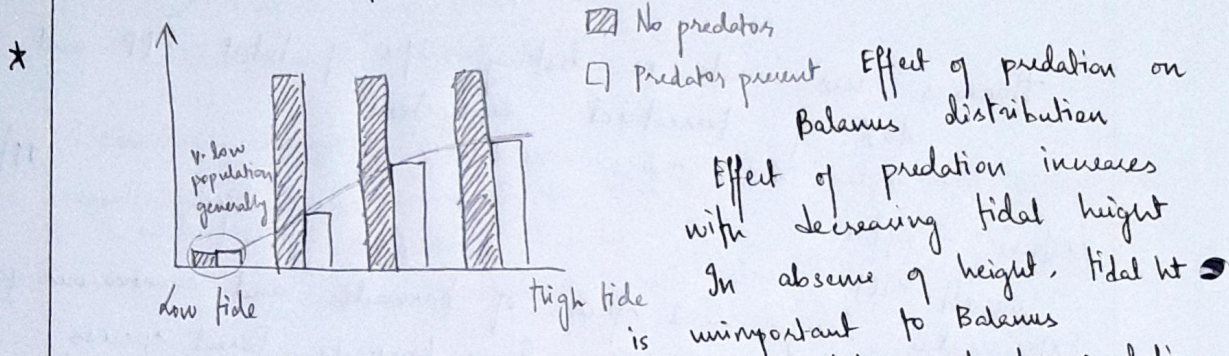 *
No predators
Predator present
Effect of predation on
Balanus distribution
v. low
population
generally
Effect of predation increases
with decreasing tidal height
In absense of height, tidal ht
is unimportant to Balanus
Low tide
High tide